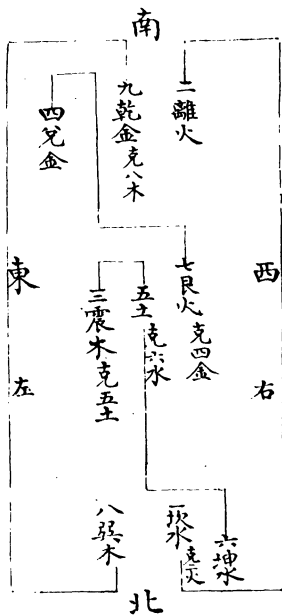 南
二離火
九乾金克八木
四兌金
西
右
七艮火克四金
五土克六水
三震木克五土
東
左
六坤水
一坎水克二火
八巽木
北